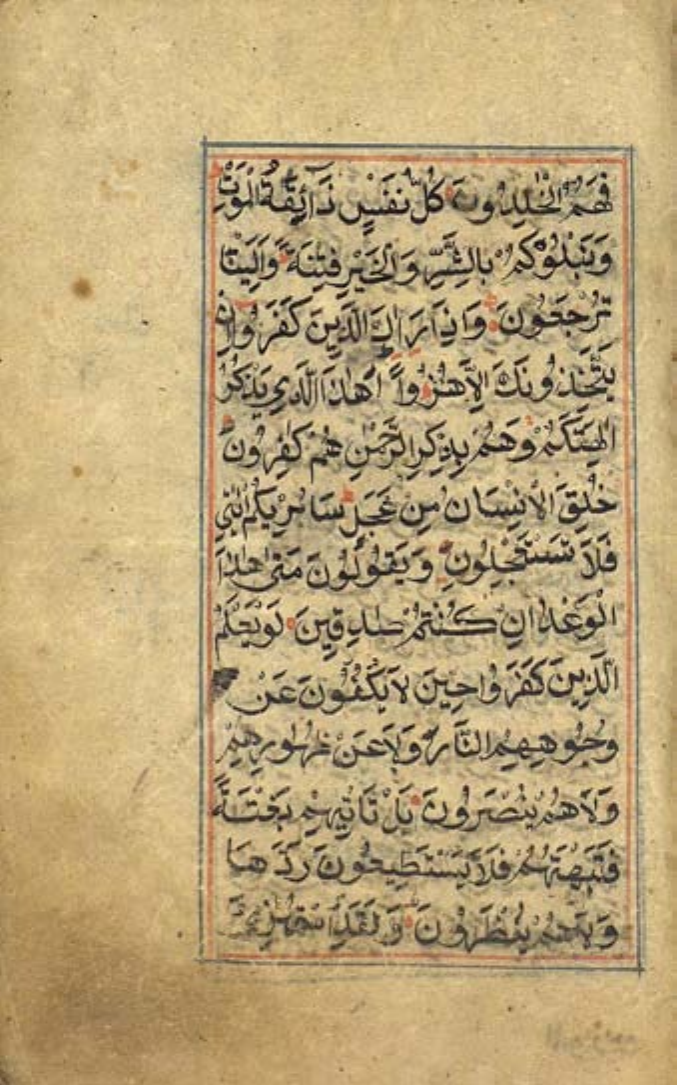 فَهُمُ الْخٰلِدُونَ كُلُّ نَفْسٍ ذَآئِقَةُ الْمَوْتِ
وَنَبْلُوكُمْ بِالشَّرِّ وَالْخَيْرِ فِتْنَةً وَاِلَيْنَا
تُرْجَعُونَ وَاِذَا رَاٰكَ الَّذِينَ كَفَرُوا اِنْ
يَتَّخِذُونَكَ اِلَّا هُزُوًا اَهٰذَا الَّذِي يَذْكُرُ
اٰلِهَتَكُمْ وَهُمْ بِذِكْرِ الرَّحْمٰنِ هُمْ كٰفِرُونَ
خُلِقَ الْاِنْسَانُ مِنْ عَجَلٍ سَاُرِيكُمْ اٰيٰتِي
فَلَا تَسْتَعْجِلُونِ وَيَقُولُونَ مَتٰى هٰذَا
الْوَعْدُ اِنْ كُنْتُمْ صٰدِقِينَ لَوْ يَعْلَمُ
الَّذِينَ كَفَرُوا حِينَ لَا يَكُفُّونَ عَنْ
وُجُوهِهِمُ النَّارَ وَلَا عَنْ ظُهُورِهِمْ
وَلَا هُمْ يُنْصَرُونَ بَلْ تَاْتِيهِمْ بَغْتَةً
فَتَبْهَتُهُمْ فَلَا يَسْتَطِيعُونَ رَدَّهَا
وَلَا هُمْ يُنْظَرُونَ وَلَقَدِ اسْتُهْزِئَ